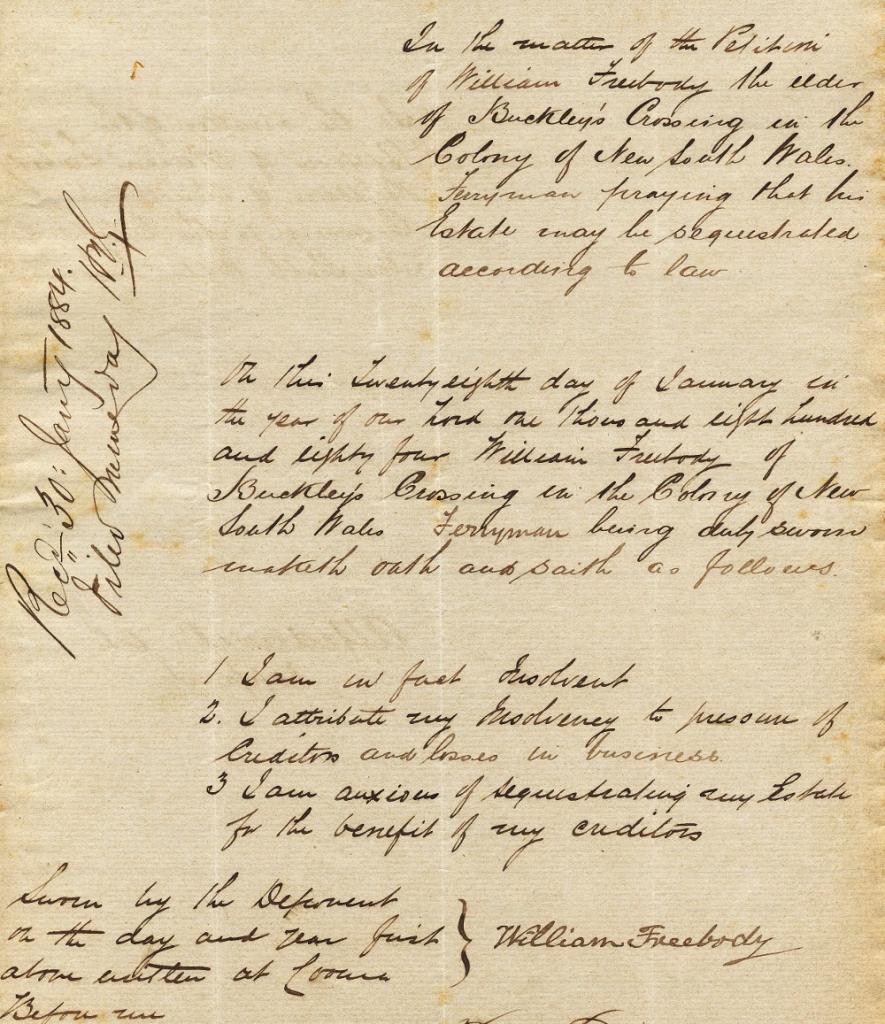 In the matter of the Petition
of William Freebody the elder
of Buckley's Crossing in the
Colony of New South Wales.
Ferryman praying that his
Estate may be sequestrated
according to law
Recd 30: Jany 1884.
Filed same day
On this Twenty eighth day of January in
the year of our Lord one thousand eight hundred
and eighty four William Freebody of
Buckley's Crossing in the Colony of New
South Wales Ferryman being duly sworn
maketh oath and saith as follows.
1 I am in fact Insolvent
2. I attribute my Insolvency to pressure of
Creditors and losses in business.
3 I am anxious of sequestrating my Estate
for the benefit of my creditors
Sworn by the Deponent
on the day and year first
above written at Cooma
Before me
William Freebody